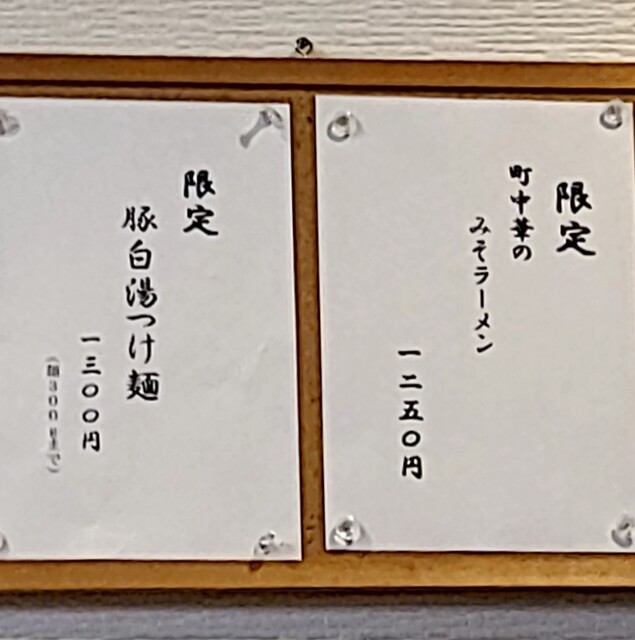 限定
町中華の
みそラーメン
一二五〇円
限定
豚白湯つけ麺
一三〇〇円
（麺300gまで）